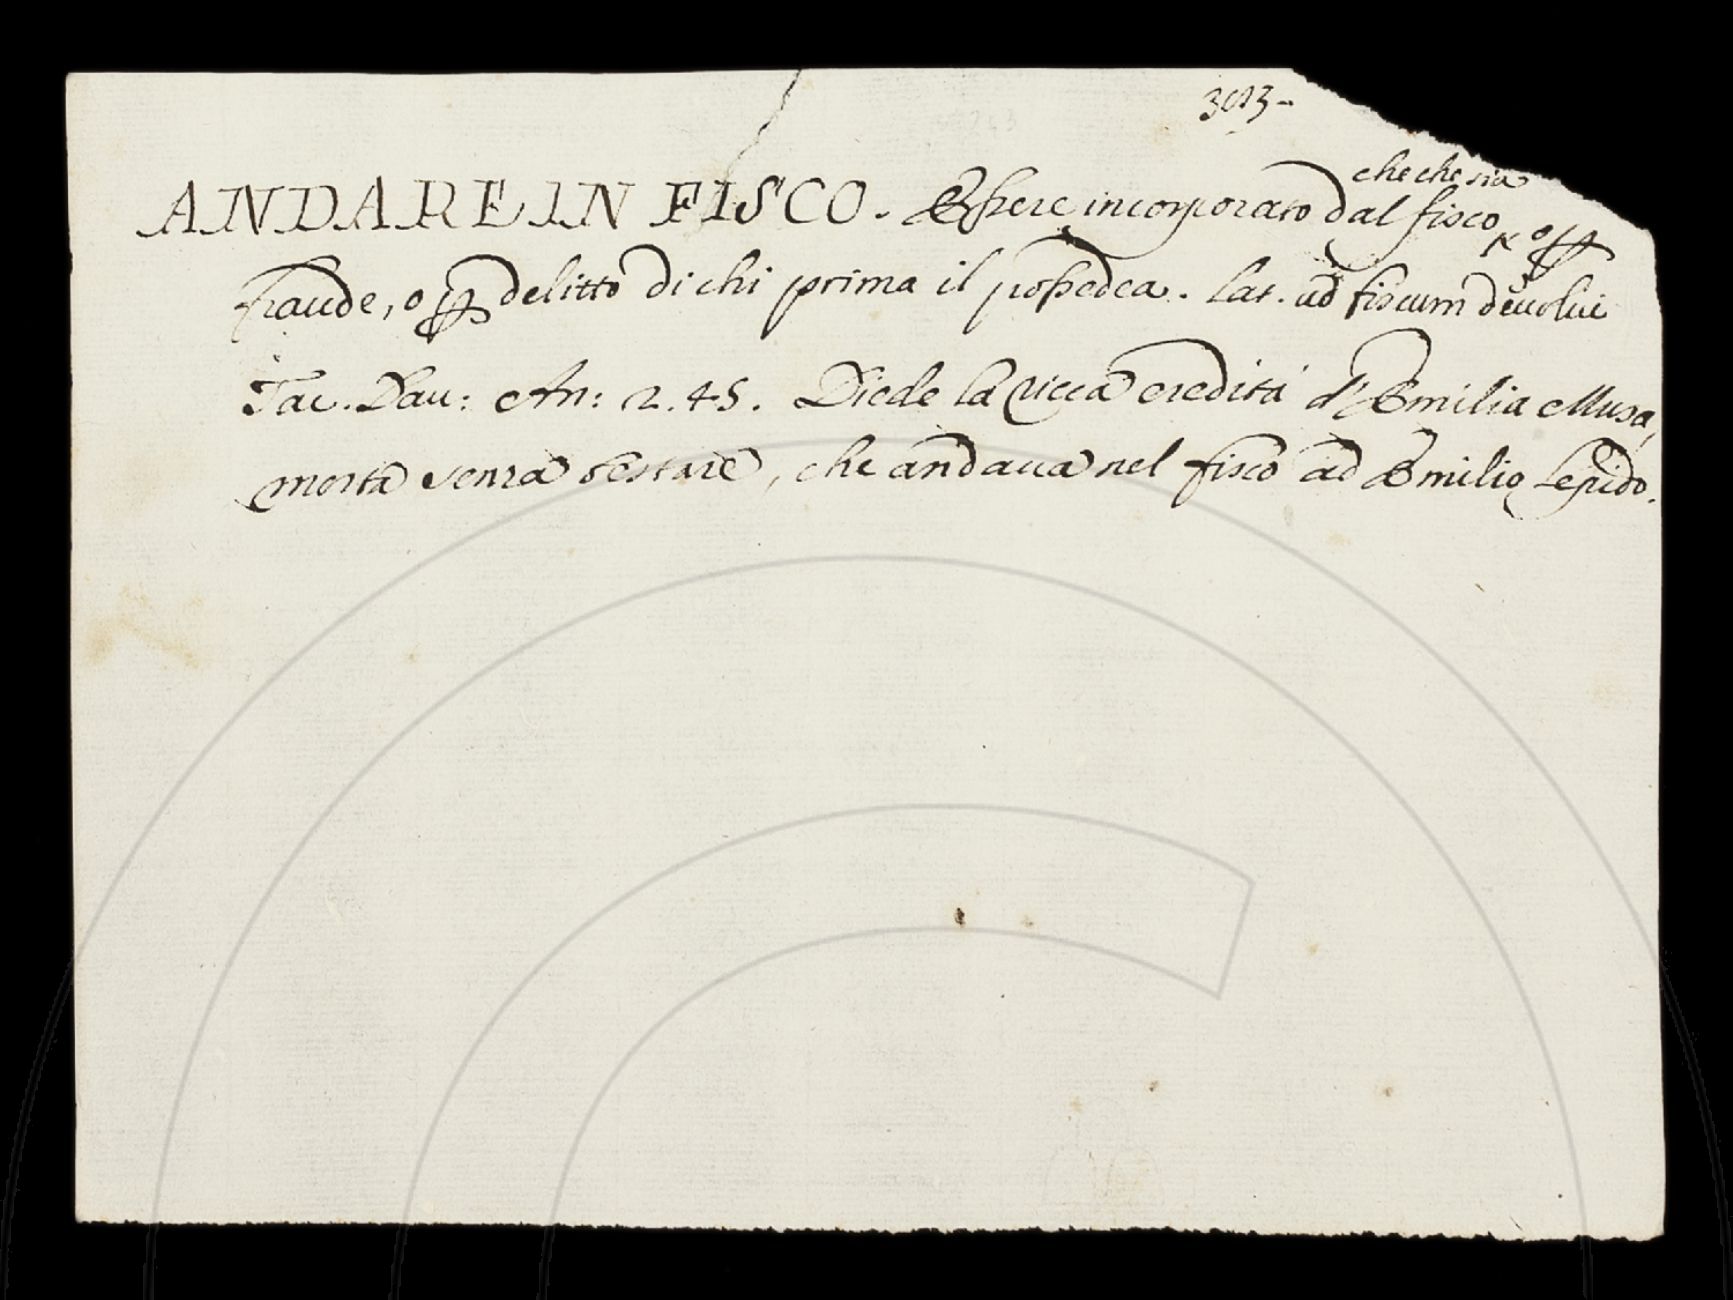 3013-
che che sia
ANDARE IN FISCO. Essere incorporato dal fisco, o p
fraude, o p delitto di chi prima il possedea. Lat. ad fiscum devolui
Tac. Dav: An: 2.45. Diede la ricca eredità d'Emilia Musa,
morta senza testare, che andava nel fisco ad Emilio Lepido.